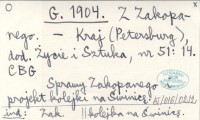 G. 1904. Z Zakopa-
nego. — Kraj (Petersburg),
dod. Życie i Sztuka, nr 51: 14.
CBG
Sprawy Zakopanego
projekt kolejki na Świnicę.
ind: Zak. || kolejka na Świnicę.